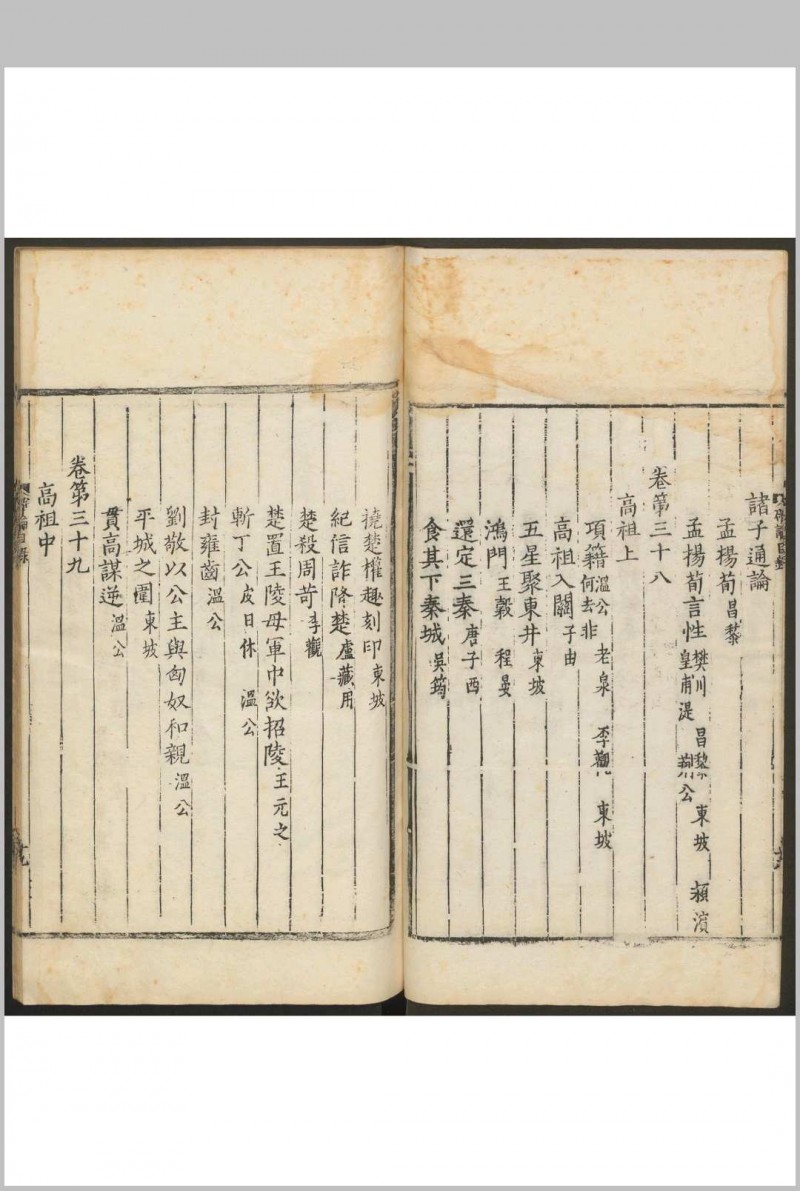 諸子通論
孟揚荀 昌黎
孟揚荀言性 樊川 昌黎 東坡 潁濱 皇甫湜 荊公
卷第三十八
高祖上
項籍 溫公 老泉 李觀 東坡 何去非
高祖入關 子由
五星聚東井 東坡
鴻門 王轂 程晏
還定三秦 唐子西
食其下秦城 吳筠
撓楚權趣刻印 東坡
紀信詐降楚 盧藏用
楚殺周苛 李觀
楚置王陵母軍中欲招陵 王元之
斬丁公 皮日休 溫公
封雍齒 溫公
劉敬以公主與匈奴和親 溫公
平城之圍 東坡
貫高謀逆 溫公
卷第三十九
高祖中